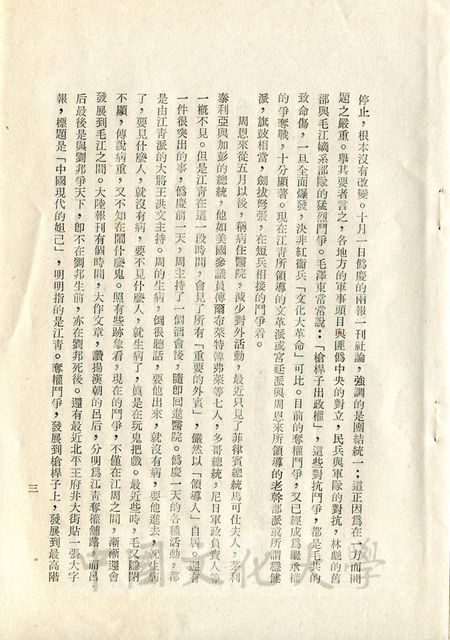 停止，根本沒有改變。十月一日僞慶的兩報一刊社論，強調的是團結統一；這正因爲在一方面問
題之嚴重。舉其要者言之，各地方的軍事頭目與匪僞中央的對立，民兵與軍隊的對抗，林彪的舊
部與毛江嫡系部隊的猛烈鬥爭。毛澤東常常說：「槍桿子出政權」，這些對抗鬥爭，都是毛共的
致命傷，一旦全面爆發，決非紅衞兵「文化大革命」可比。目前的奪權鬥爭，又已經成爲繼承權
的爭奪戰，十分顯著。現在江靑所領導的文革派或宮廷派與周恩來所領導的老幹部派或所謂穩健
派，旗鼓相當，劍拔弩張，在短兵相接的鬥爭着。
周恩來從五月以後，稱病住醫院，減少對外活動，最近只見了菲律賓總統馬可仕夫人，茅利
泰利亞與加彭的總統，他如美國參議員傅爾布萊特韓弗萊等七人，多哥總統，尼日軍政負責人等
一概不見。但是江靑在這一段時間，會見了所有「重要的外賓」，儼然以「領導人」自居。還有
一件很突出的事，僞慶前一天，周主持了一個酒會後，隨即回進醫院。僞慶一天的各種活動，都
是由江靑派的大將王洪文主持。周的生病，倒很聽話，要他出來，就沒有病，要他進去，就生病
了，要見什麼人，就沒有病，要不見什麼人，就生病了，眞是在玩鬼把戲。最近些時，毛又隱閉
不顯，傳說病重，又不知在鬧什麼鬼。照有些跡象看，現在的鬥爭，不僅在江周之間，漸漸還會
發展到毛江之間。大陸報刊有個時間，大作文章，讚揚漢朝的呂后，分明爲江靑奪權舖路，而呂
后最後是與劉邦爭天下，卽不在劉邦生前，亦在劉邦死後。還有最近北平王府井大街貼一張大字
報，標題是「中國現代的妲己」，明明指的是江靑。奪權鬥爭，發展到槍桿子上，發展到最高階
三
中國文化大學